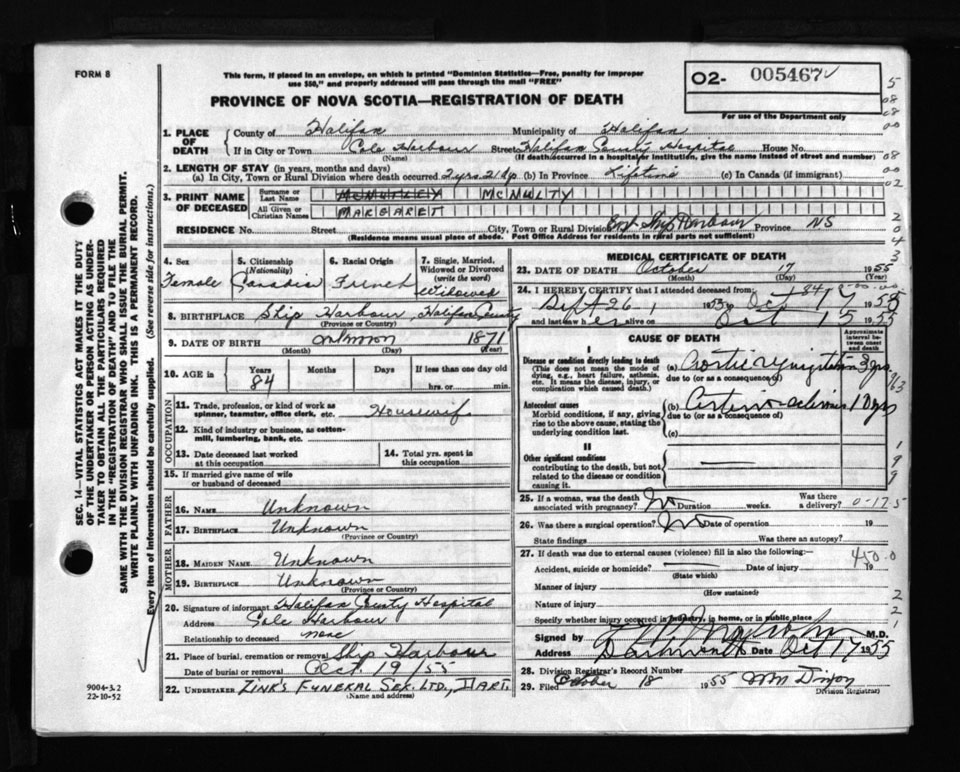 FORM 8
This form, if placed in an envelope, on which is printed "Dominion Statistics—Free, penalty for improper
use $50," and properly addressed will pass through the mail "FREE"
PROVINCE OF NOVA SCOTIA—REGISTRATION OF DEATH
O2- 005467
For use of the Department only
SEC. 14—VITAL STATISTICS ACT MAKES IT THE DUTY
OF THE UNDERTAKER OR PERSON ACTING AS UNDER-
TAKER TO OBTAIN ALL THE PARTICULARS REQUIRED
IN THE "REGISTRATION OF DEATH" AND TO FILE THE
SAME WITH THE DIVISION REGISTRAR WHO SHALL ISSUE THE BURIAL PERMIT.
WRITE PLAINLY WITH UNFADING INK. THIS IS A PERMANENT RECORD.
Every item of information should be carefully supplied. (See reverse side for instructions.)
1. PLACE OF DEATH County of Halifax Municipality of Halifax
If in City or Town Cole Harbour Street Halifax County Hospital House No.
(Name) (If death occurred in a hospital or institution, give the name instead of street and number)
2. LENGTH OF STAY (in years, months and days)
(a) In City, Town or Rural Division where death occurred 2 yrs. 21 dys (b) In Province Lifetime (c) In Canada (if immigrant)
3. PRINT NAME OF DECEASED Surname or Last Name McNULTY
All Given or Christian Names MARGARET
RESIDENCE No. Street City, Town or Rural Division Ship Harbour Province NS
(Residence means usual place of abode. Post Office Address for residents in rural parts not sufficient)
4. Sex Female
5. Citizenship (Nationality) Canadian
6. Racial Origin French
7. Single, Married, Widowed or Divorced (write the word) Widowed
8. BIRTHPLACE Ship Harbour, Halifax County
(Province or Country)
9. DATE OF BIRTH unknown 1871
(Month) (Day) (Year)
10. AGE in Years 84 Months Days If less than one day
hrs. or min.
OCCUPATION
11. Trade, profession, or kind of work as
spinner, teamster, office clerk, etc. Housewife
12. Kind of industry or business, as cotton-
mill, lumbering, bank, etc.
13. Date deceased last worked
at this occupation
14. Total yrs. spent in
this occupation
15. If married give name of wife
or husband of deceased
FATHER
16. NAME Unknown
17. BIRTHPLACE Unknown
(Province or Country)
MOTHER
18. MAIDEN NAME Unknown
19. BIRTHPLACE Unknown
(Province or Country)
20. Signature of informant Halifax County Hospital
Address Cole Harbour
Relationship to deceased none
21. Place of burial, cremation or removal Ship Harbour
Date of burial or removal Oct. 19/55
22. UNDERTAKER ZINK'S FUNERAL SER. LTD., DART.
(Name and address)
9004-3.2
22-10-52
MEDICAL CERTIFICATE OF DEATH
23. DATE OF DEATH October 1955
(Month) (Day)
24. I HEREBY CERTIFY that I attended deceased from:
Sept 26 Oct 1955
and last saw her alive on Oct 15 1955
CAUSE OF DEATH
Approximate interval between onset and death
I
Disease or condition directly leading to death
(This does not mean the mode of
dying, e.g., heart failure, asthenia,
etc. It means the disease, injury, or
complication which caused death.)
(a) Aortic regurgitation 3 yrs.
due to (or as a consequence of)
Antecedent causes
Morbid conditions, if any, giving
rise to the above cause, stating the
underlying condition last.
(b) Arteriosclerosis 10 yrs
due to (or as a consequence of)
(c)
II
Other significant conditions
contributing to the death, but not
related to the disease or condition
causing it.
25. If a woman, was the death
associated with pregnancy? No Duration weeks. Was there a delivery? 0-17.5
26. Was there a surgical operation? No Date of operation 19
State findings Was there an autopsy?
27. If death was due to external causes (violence) fill in also the following: 450.0
Accident, suicide or homicide? Date of injury 19
(State which)
Manner of injury
(How sustained)
Nature of injury
Specify whether injury occurred in industry, in home, or in public place
Signed by M.D.
Address Dartmouth Date Oct 17 1955
28. Division Registrar's Record Number
29. Filed October 18 1955
Division Registrar